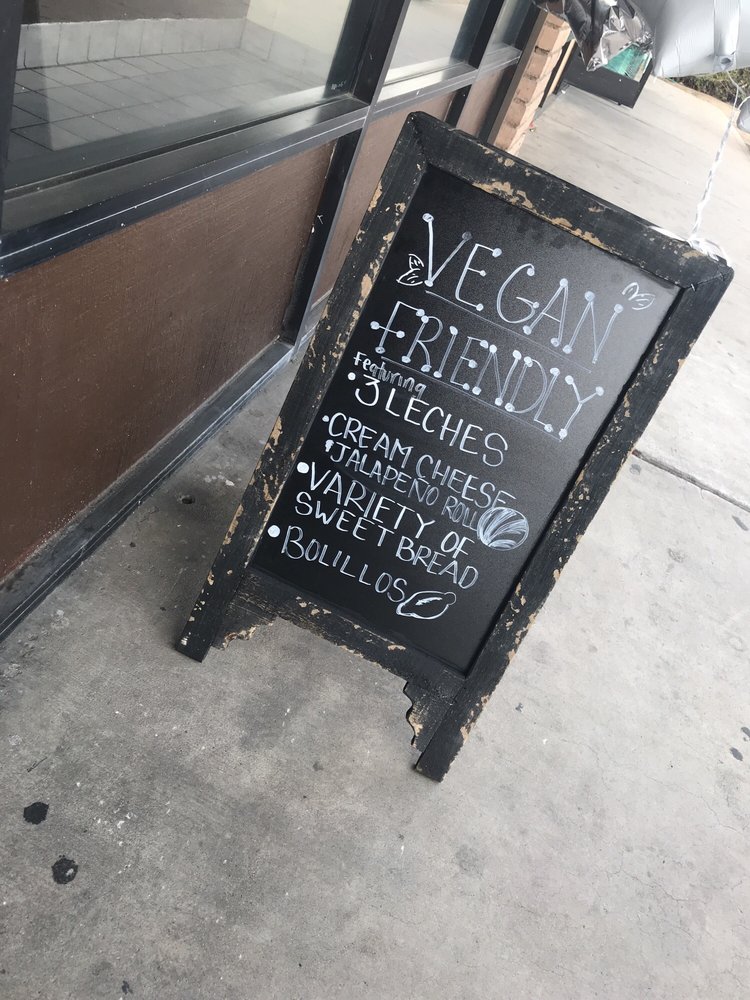 VEGAN
FRIENDLY
Featuring
• 3 LECHES
• CREAM CHEESE
• JALAPEÑO ROLL
• VARIETY OF
SWEET BREAD
• BOLILLOS